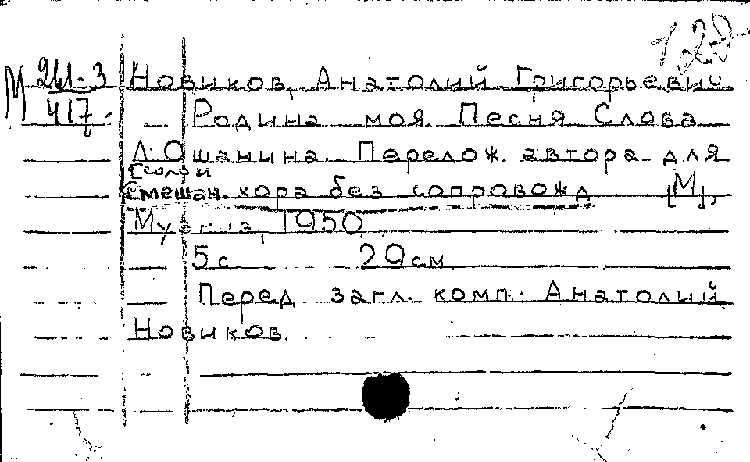 1,20
М 261-3
417
Новиков, Анатолий Григорьевич
Родина моя. Песня. Слова
Л. Ошанина. Перелож. автора для
смешан. хора без сопровожд [М],
Музгиз, 1950
5 с. 29 см.
Перед загл. комп. Анатолий
Новиков.